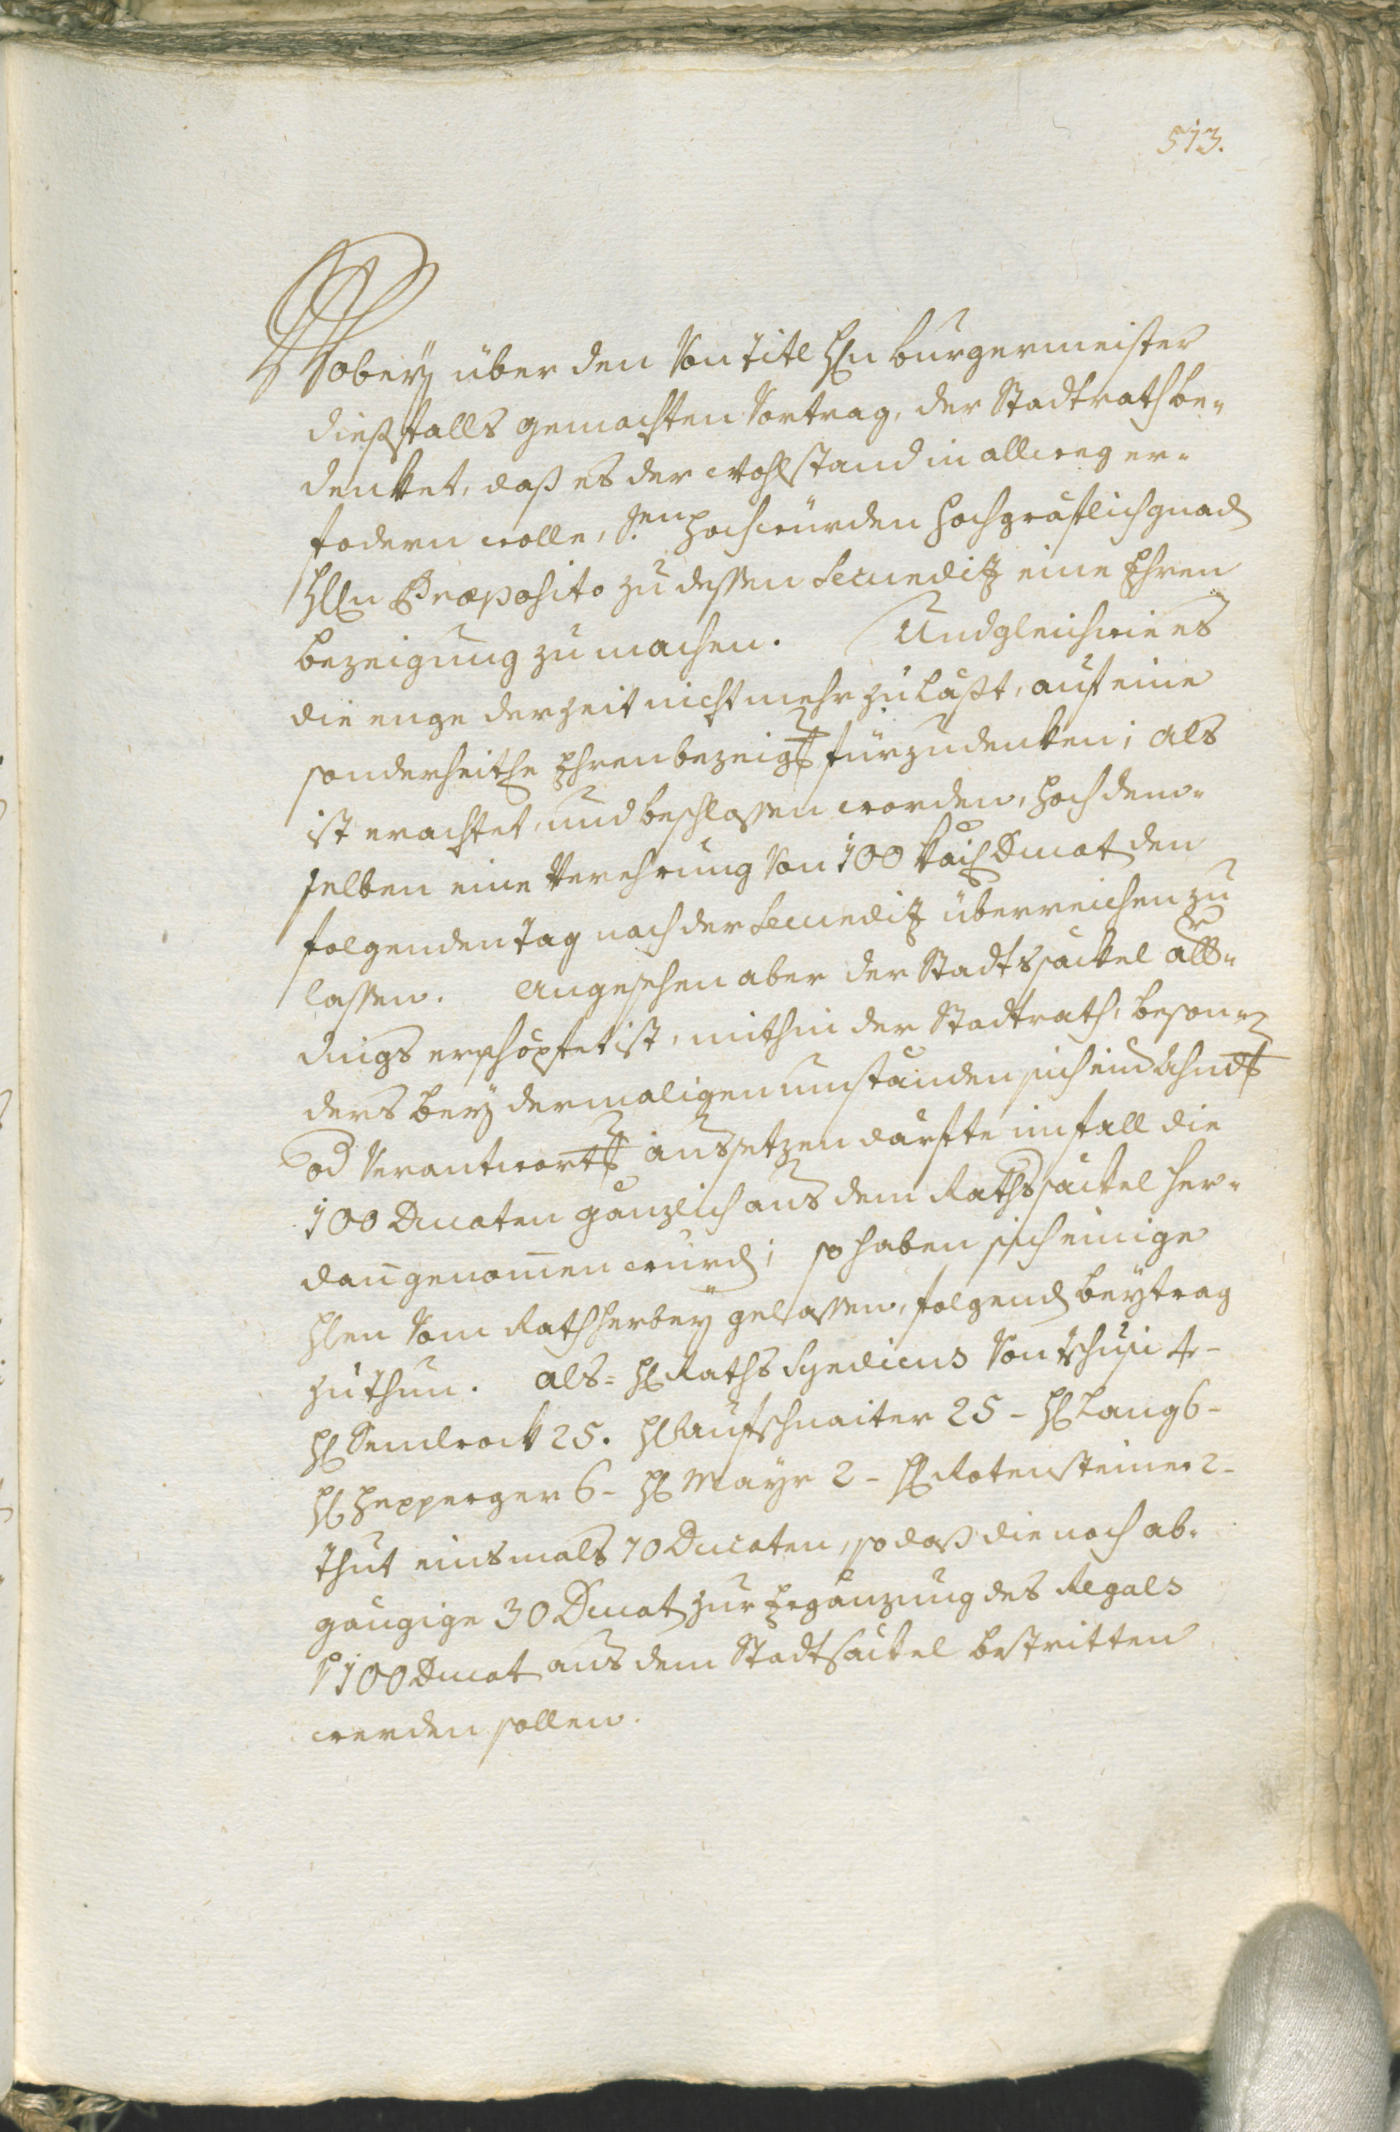 513.
Wobey über den Von Titl H͞n burgermeister
dießfalls gemachten Vortrag, der Stadtrath be-
denket, daß es der wohlstand in alleweg er-
fodern wolle, Sr.en Hochwürden Hochgräflich gnad
H͞n Præposito zu dessen Secundiz eine Ehren
bezeigung zu machen. Und gleichwie es
die enge der zeit nicht mehr zu laßt, auf eine
sonderheitle Ehrenbezeigg fürzudenken; Als
ist erachtet, und beschlossen worden, hoch dem-
selben eine Verehrung Von 100 Kaiß Ducat den
folgenden tag nach der Secundiz überreichen zu
lassen. Angesehen aber der Stadtssäckel all-
dings erschöpfet ist, mithin der Stadtrath, beson-
ders bey dermaligen umständen sich eind Ahndg
od Verantwortg aussetzen därfte im fall die
100 Ducaten gänzlich aus dem Rathssäckel her-
dan̄ genom̄en wurd; so haben sich einige
H͞en Vom Rath herbey gelassen, folgend beytrag
zu thun. Als= H Raths Syndicus Von Tschusi 4-
H Sendrock 25. H Aufschnaiter 25- H Lang 6-
H Hepperger 6- H Mayr 2- H Rotensteiner 2-
thut einsmals 70 Ducaten, so daß die noch ab-
gängige 30 Ducat zur Ergänzung des Regals
P 100 Ducat aus dem Stadtsäckel bestritten
werden sollen.